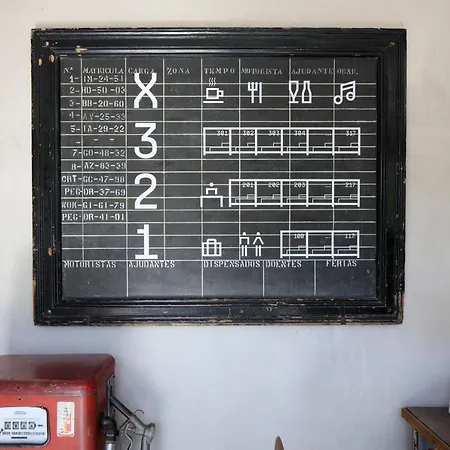 Nº MATRICULA CARGA ZONA TEMPO MOTORISTA AJUDANTE OBSE.
1- IM-24-51
2- HD-50-03
3- BB-20-60
4- AV-25-33
5- IA-29-22
7- GO-48-32
8- AZ-83-39
ORT-GC-47-98
PEG-DR-37-69
WOK-GI-61-79
PEG-DR-41-01
X
3 301 303 304 317
2 201 202 203 217
1 100 117
MOTORISTAS AJUDANTES DISPENSADOS DOENTES FERIAS